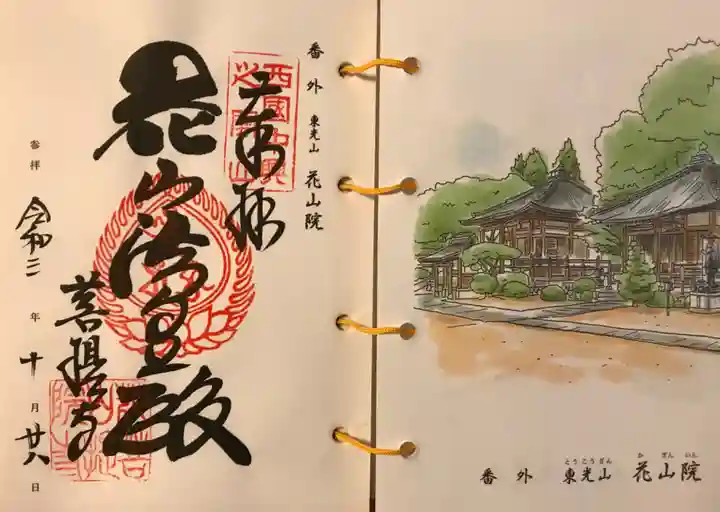 番外 東光山 花山院
奉拝
花山法皇殿
菩提寺
参拝 令和二年十月廿八日
西國中興
とうこうざん か ざん いん
番外 東光山 花山院